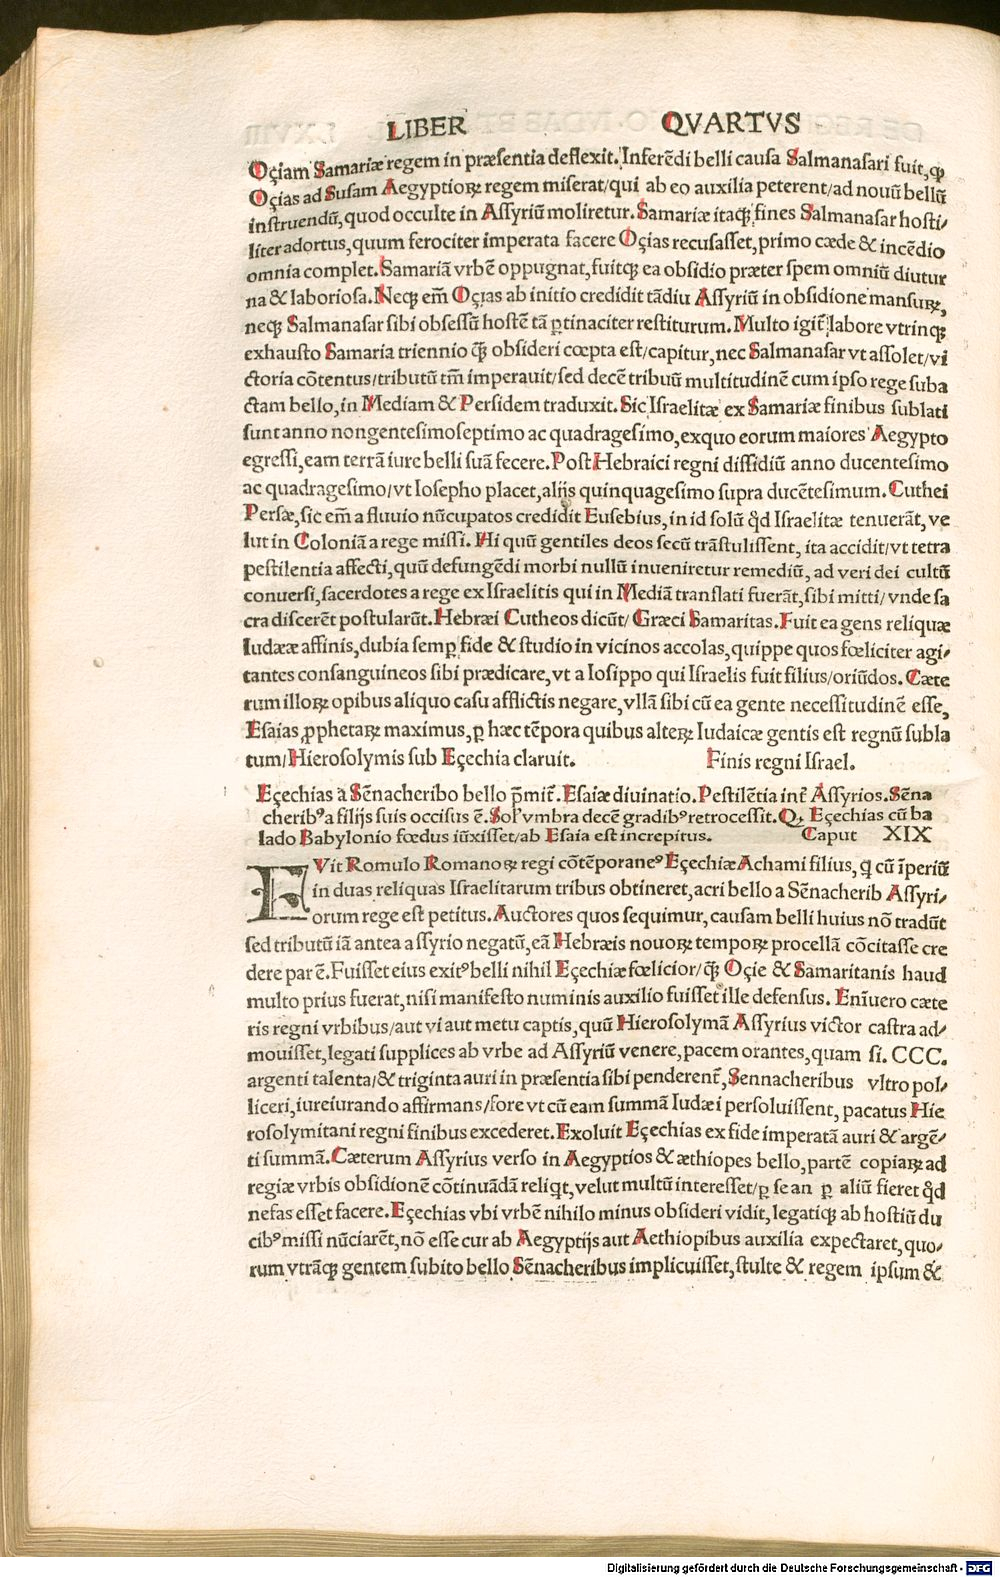 LIBER QVARTVS
Oçiam Samariæ regem in præsentia deflexit. Inferẽdi belli causa Salmanasari fuit, ꝙ
Oçias ad Susam Aegyptioꝝ regem miserat/qui ab eo auxilia peterent/ad nouũ bellũ
instruendũ, quod occulte in Assyriũ moliretur. Samariæ itaqꝫ fines Salmanasar hosti/
liter adortus, quum ferociter imperata facere Oçias recusasset, primo cæde & incẽdio
omnia complet. Samariã vrbẽ oppugnat, fuitqꝫ ea obsidio præter spem omniũ diutur
na & laboriosa. Neqꝫ em̃ Oçias ab initio credidit tãdiu Assyriũ in obsidione mansuꝝ,
neqꝫ Salmanasar sibi obsessũ hostẽ tã ꝑtinaciter restiturum. Multo igit̃ labore vtrinqꝫ
exhausto Samaria triennio q̃ꝫ obsideri cœpta est/capitur, nec Salmanasar vt assolet/vi
ctoria cõtentus/tributũ tm̃ imperauit/sed decẽ tribuũ multitudinẽ cum ipso rege suba
ctam bello, in Mediam & Persidem traduxit. Sic Israelitæ ex Samariæ finibus sublati
sunt anno nongentesimoseptimo ac quadragesimo, exquo eorum maiores Aegypto
egressi, eam terrã iure belli suã fecere. Post Hebraici regni dissidiũ anno ducentesimo
ac quadragesimo/vt Iosepho placet, alijs quinquagesimo supra ducẽtesimum. Cuthei
Persæ, sic em̃ a fluuio nũcupatos credidit Eusebius, in id solũ q̃d Israelitæ tenuerãt, ve
lut in Coloniã a rege missi. Hi quũ gentiles deos secũ trãstulissent, ita accidit/vt tetra
pestilentia affecti, quũ defungẽdi morbi nullũ inueniretur remediũ, ad veri dei cultũ
conuersi, sacerdotes a rege ex Israelitis qui in Mediã translati fuerãt, sibi mitti/vnde sa
cra discerẽt postularũt. Hebræi Cutheos dicũt/Græci Samaritas. Fuit ea gens reliquæ
Iudææ affinis, dubia semꝑ fide & studio in vicinos accolas, quippe quos fœliciter agi/
tantes consanguineos sibi prædicare, vt a Iosippo qui Israelis fuit filius/oriũdos. Cæte
rum illoꝝ opibus aliquo casu afflictis negare, vllã sibi cũ ea gente necessitudinẽ esse,
Esaias ꝓphetaꝝ maximus, ꝑ hæc tẽpora quibus alteꝝ Iudaicæ gentis est regnũ subla
tum/Hierosolymis sub Eçechia claruit. Finis regni Israel.
Eçechias a Sẽnacheribo bello p̃mit̃. Esaiæ diuinatio. Pestilẽtia int̃ Assyrios. Sẽna
cheribꝰ a filijs suis occisus ẽ. Sol vmbra decẽ gradibꝰ retrocessit. Qꝫ Eçechias cũ ba
lado Babylonio fœdus iũxisset/ab Esaia est increpitus. Caput XIX
FVit Romulo Romanoꝝ regi cõtẽporaneꝰ Eçechiæ Achami filius, q̃ cũ ĩperiũ
in duas reliquas Israelitarum tribus obtineret, acri bello a Sẽnacherib Assyri/
orum rege est petitus. Auctores quos sequimur, causam belli huius nõ tradũt
sed tributũ iã antea assyrio negatũ, eã Hebræis nouoꝝ tempoꝝ procellã cõcitasse cre
dere par ẽ. Fuisset eius exitꝰ belli nihil Eçechiæ fœlicior/q̃ꝫ Oçie & Samaritanis haud
multo prius fuerat, nisi manifesto numinis auxilio fuisset ille defensus. Enĩuero cæte
ris regni vrbibus/aut vi aut metu captis, quũ Hierosolymã Assyrius victor castra ad/
mouisset, legati supplices ab vrbe ad Assyriũ venere, pacem orantes, quam si. CCC.
argenti talenta/& triginta auri in præsentia sibi penderent̃, Sennacheribus vltro pol/
liceri, iureiurando affirmans/fore vt cũ eam summã Iudæi persoluissent, pacatus Hie
rosolymitani regni finibus excederet. Exoluit Eçechias ex fide imperatã auri & argẽ/
ti summã. Cæterum Assyrius verso in Aegyptios & æthiopes bello, partẽ copiaꝝ ad
regiæ vrbis obsidionẽ cõtinuãdã reliq̃t, velut multũ interesset/ꝑ se an ꝑ aliũ fieret q̃d
nefas esset facere. Eçechias vbi vrbẽ nihilo minus obsideri vidit, legatiqꝫ ab hostiũ du
cibꝰ missi nũciarẽt, nõ esse cur ab Aegyptijs aut Aethiopibus auxilia expectaret, quo/
rum vtrãqꝫ gentem subito bello Sẽnacheribus implicuisset, stulte & regem ipsum &
Digitalisierung gefördert durch die Deutsche Forschungsgemeinschaft - DFG